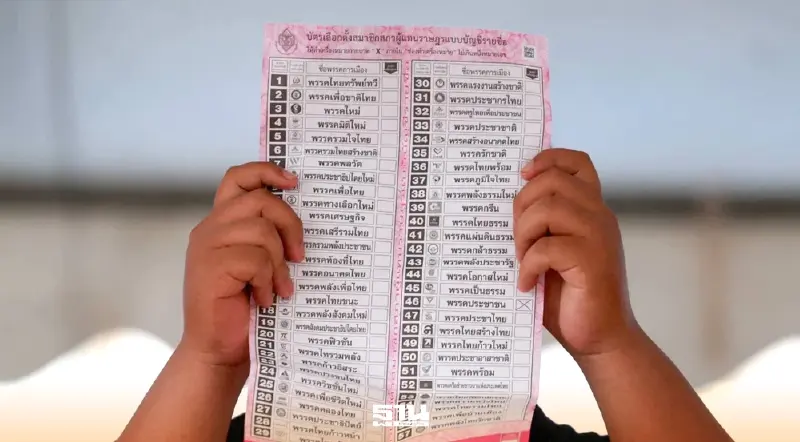 บัตรเลือกตั้งสมาชิกสภาผู้แทนราษฎรแบบบัญชีรายชื่อ
ชื่อพรรคการเมือง
1 พรรคไทยทรัพย์ทวี
2 พรรคเพื่อชาติไทย
3 พรรคใหม่
4 พรรคมิติใหม่
5 พรรครวมใจไทย
6 พรรครวมไทยสร้างชาติ
7 พรรคพลวัต
พรรคประชาธิปไตยใหม่
พรรคเพื่อไทย
พรรคทางเลือกใหม่
พรรคเศรษฐกิจ
พรรคเสรีรวมไทย
พรรครวมพลังประชาชน
พรรคท้องที่ไทย
พรรคอนาคตไทย
พรรคพลังเพื่อไทย
พรรคไทยชนะ
18 พรรคพลังสังคมใหม่
19 พรรคสังคมประชาธิปไตยไทย
20 พรรคฟิวชัน
21 พรรคไทรวมพลัง
22 พรรคก้าวอิสระ
23
24
25 พรรควิชชั่นใหม่
26 พรรคเพื่อชีวิตใหม่
27
28 พรรคประชาธิปัตย์
29 พรรคไทยก้าวหน้า
ชื่อพรรคการเมือง
30 พรรคแรงงานสร้างชาติ
31 พรรคประชากรไทย
32 พรรคครูไทยเพื่อประชาชน
33 พรรคประชาชาติ
34 พรรคสร้างอนาคตไทย
35 พรรครักชาติ
36 พรรคไทยพร้อม
37 พรรคภูมิใจไทย
38 พรรคพลังธรรมใหม่
39 พรรคกรีน
40 พรรคไทยธรรม
41 พรรคแผ่นดินธรรม
42 พรรคกล้าธรรม
43 พรรคพลังประชารัฐ
44 พรรคโอกาสใหม่
45 พรรคเป็นธรรม
46 พรรคประชาชน
47 พรรคประชาไทย
48 พรรคไทยสร้างไทย
49 พรรคไทยก้าวใหม่
50 พรรคประชาอาสาชาติ
51 พรรคพร้อม
52 พรรคเครือข่ายชาวนาแห่งประเทศไทย
57
ฐาน